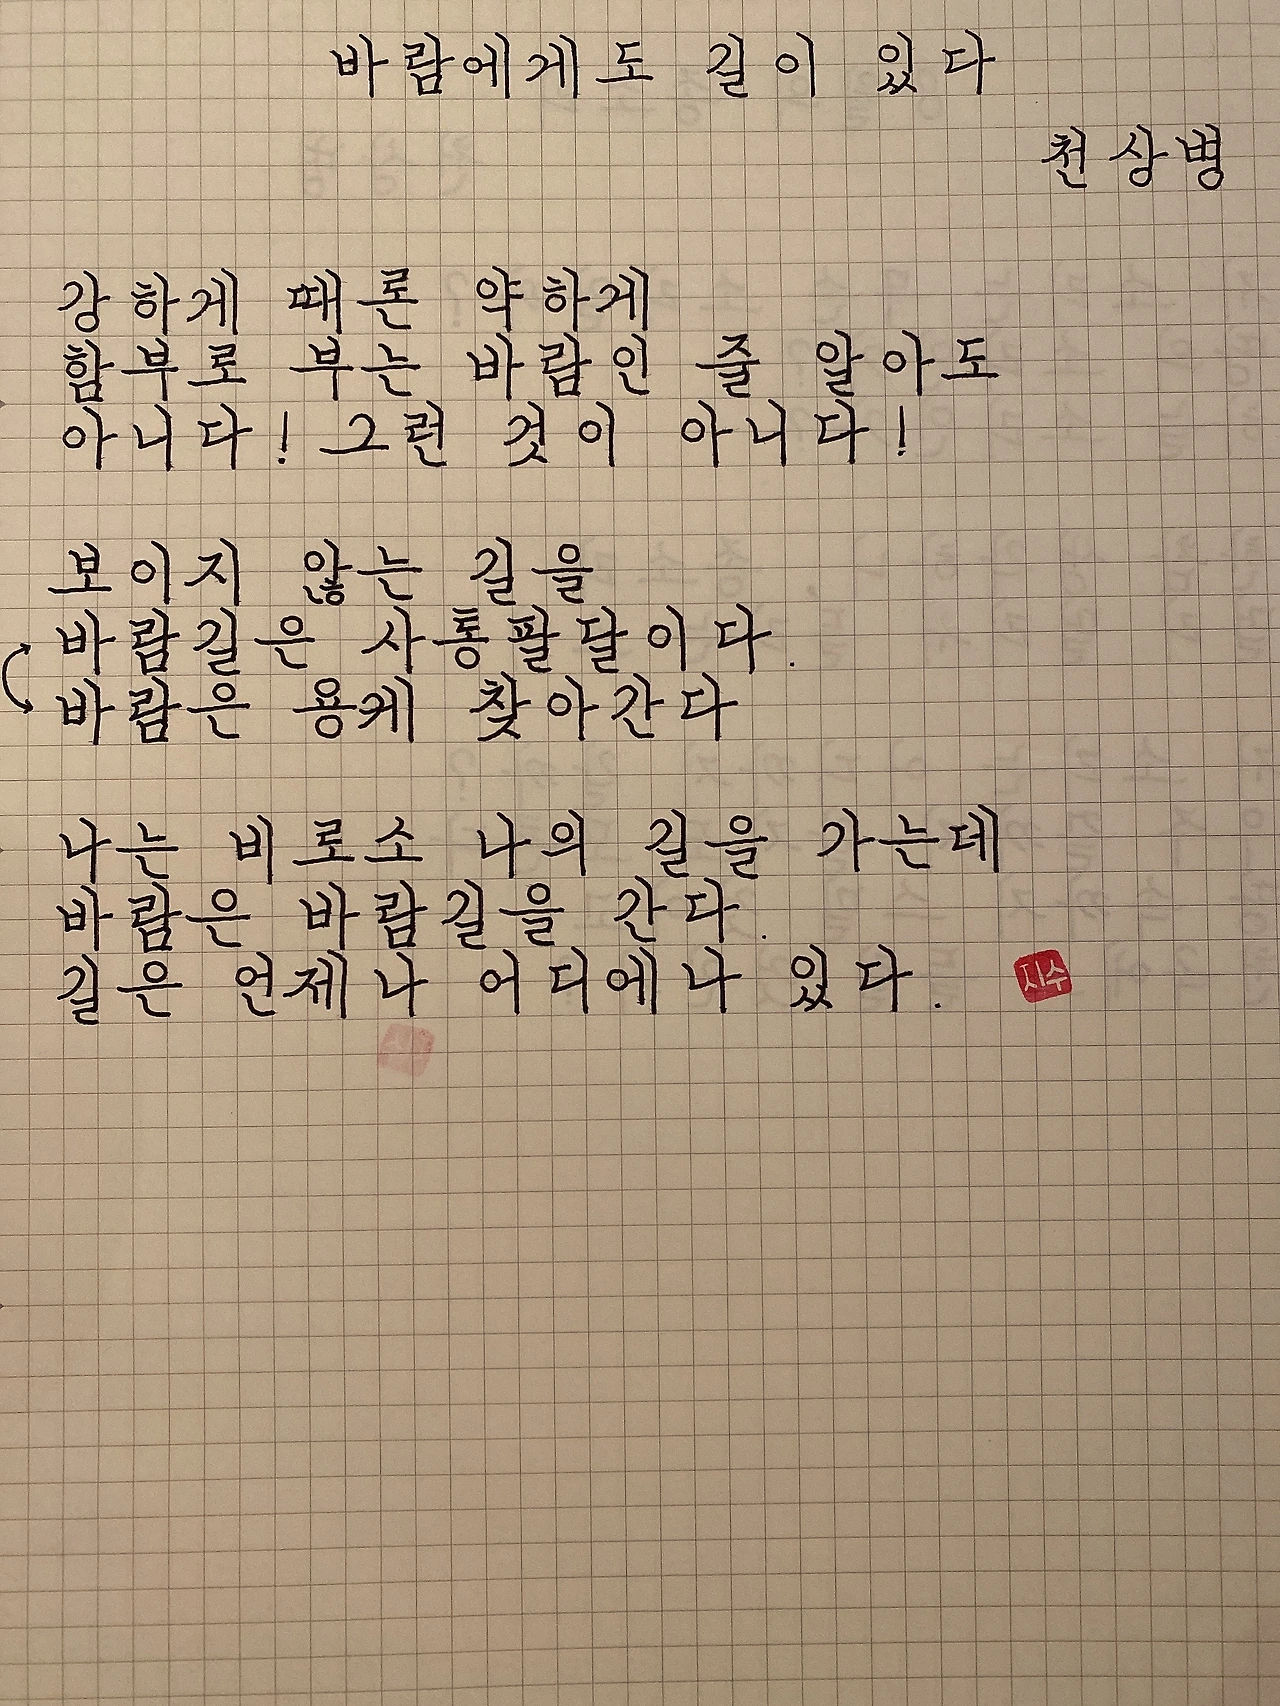 바람에게도 길이 있다
천상병
강하게 때론 약하게
함부로 부는 바람인 줄 알아도
아니다! 그런 것이 아니다!
보이지 않는 길을
바람길은 사통팔달이다.
바람은 용케 찾아간다
나는 비로소 나의 길을 가는데
바람은 바람길을 간다.
길은 언제나 어디에나 있다.
지수